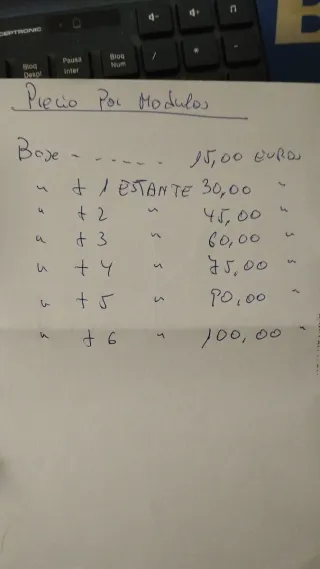 CEPTRONIC
Bloq Despl
Pausa Inter
Bloq Num
/
*
-
Precio Por Modulos
Base ------ 15,00 EUROS
" + 1 ESTANTE 30,00 "
" + 2 " 45,00 "
" + 3 " 60,00 "
" + 4 " 75,00 "
" + 5 " 90,00 "
" + 6 " 100,00 "